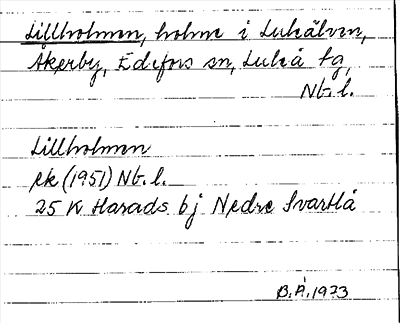 Lillholmen, holme i Luleälven,
Åkerby, Edefors sn, Luleå tg,
Nb. l.
Lillholmen
ek (1951) Nb. l.
25 K Harads bj Nedre Svartlå
B.Å. 1973